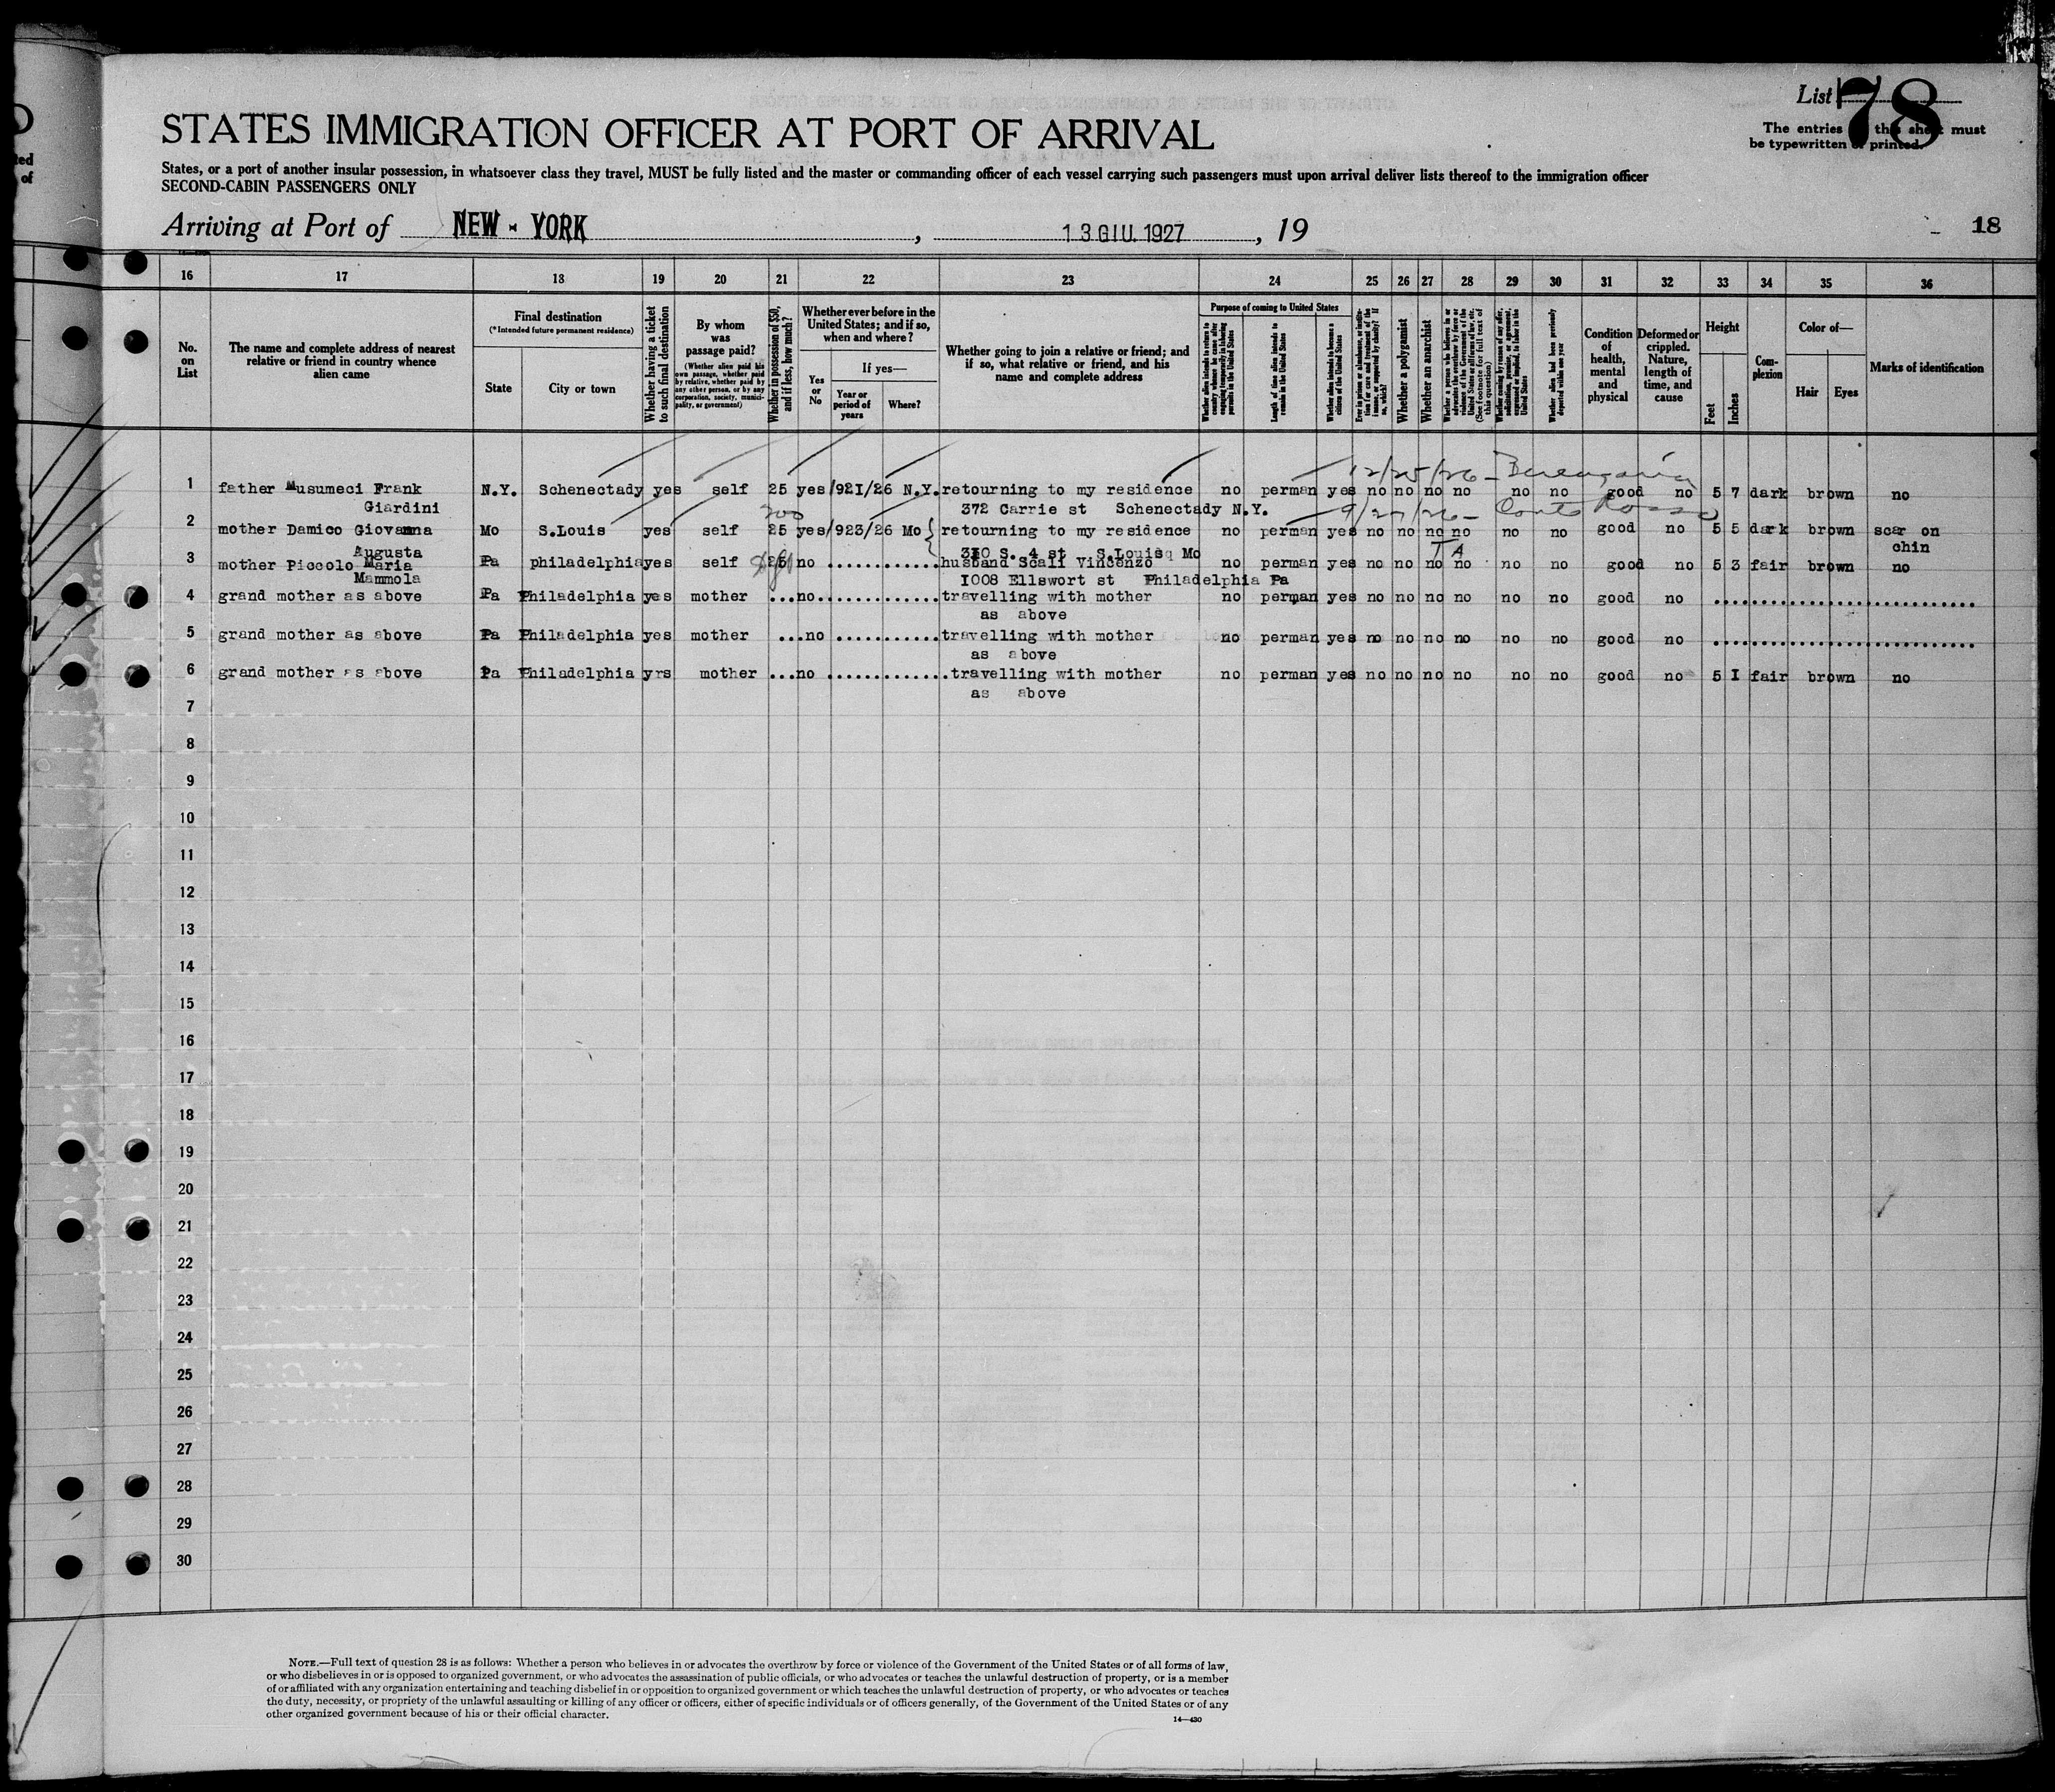 List 78
STATES IMMIGRATION OFFICER AT PORT OF ARRIVAL
The entries this sheet must
be typewritten or printed.
States, or a port of another insular possession, in whatsoever class they travel, MUST be fully listed and the master or commanding officer of each vessel carrying such passengers must upon arrival deliver lists thereof to the immigration officer
SECOND-CABIN PASSENGERS ONLY
Arriving at Port of NEW - YORK, 13 GIU. 1927, 19
18
16 17 18 19 20 21 22 23 24 25 26 27 28 29 30 31 32 33 34 35 36
No. on List
The name and complete address of nearest relative or friend in country whence alien came
Final destination
(*Intended future permanent residence)
State
City or town
Whether having a ticket to such final destination
By whom was passage paid?
(Whether alien paid his own passage, whether paid by relative, whether paid by any other person, or by any corporation, society, municipality, or government)
Whether in possession of $50, and if less, how much?
Whether ever before in the United States; and if so, when and where?
Yes or No
If yes—
Year or period of years
Where?
Whether going to join a relative or friend; and if so, what relative or friend, and his name and complete address
Purpose of coming to United States
Whether alien intends to return to country whence he came after engaging temporarily in laboring pursuits in the United States
Length of time alien intends to remain in the United States
Whether alien intends to become a citizen of the United States
Ever in prison or almshouse, or institution for care and treatment of the insane, or supported by charity? If so, which?
Whether a polygamist
Whether an anarchist
Whether a person who believes in or advocates the overthrow by force or violence of the Government of the United States or all forms of law, etc. (See footnote for full text of this question)
Whether coming by reason of any offer, solicitation, promise, or agreement, expressed or implied, to labor in the United States
Whether alien had been previously deported within one year
Condition of health, mental and physical
Deformed or crippled. Nature, length of time, and cause
Height
Feet
Inches
Complexion
Color of—
Hair
Eyes
Marks of identification
12/25/26 - Berengaria
1 father Musumeci Frank N.Y. Schenectady yes self 25 yes 1921/26 N.Y. retourning to my residence no perman yes no no no no no no good no 5 7 dark brown no
Giardini 372 Carrie st Schenectady N.Y.
200 9/27/26 - Conte Rosso
2 mother Damico Giovanna Mo S.Louis yes self 25 yes 1923/26 Mo retourning to my residence no perman yes no no no no no no good no 5 5 dark brown scar on
Augusta 310 S. 4 st S.Louis Mo T A chin
3 mother Piccolo Maria Pa philadelphia yes self 25 no ............ husband Scali Vincenzo no perman yes no no no no no no good no 5 3 fair brown no
Mammola 1008 Ellswort st Philadelphia Pa
4 grand mother as above Pa Philadelphia yes mother ...no............ travelling with mother no perman yes no no no no no no good no ............................
as above
5 grand mother as above Pa Philadelphia yes mother ...no ........... travelling with mother no perman yes no no no no no no good no ............................
as above
6 grand mother as above Pa Philadelphia yrs mother ...no ............. travelling with mother no perman yes no no no no no no good no 5 I fair brown no
as above
7
8
9
10
11
12
13
14
15
16
17
18
19
20
21
22
23
24
25
26
27
28
29
30
NOTE.—Full text of question 28 is as follows: Whether a person who believes in or advocates the overthrow by force or violence of the Government of the United States or of all forms of law,
or who disbelieves in or is opposed to organized government, or who advocates the assassination of public officials, or who advocates or teaches the unlawful destruction of property, or is a member
of or affiliated with any organization entertaining and teaching disbelief in or opposition to organized government or which teaches the unlawful destruction of property, or who advocates or teaches
the duty, necessity, or propriety of the unlawful assaulting or killing of any officer or officers, either of specific individuals or of officers generally, of the Government of the United States or of any
other organized government because of his or their official character.
14—430